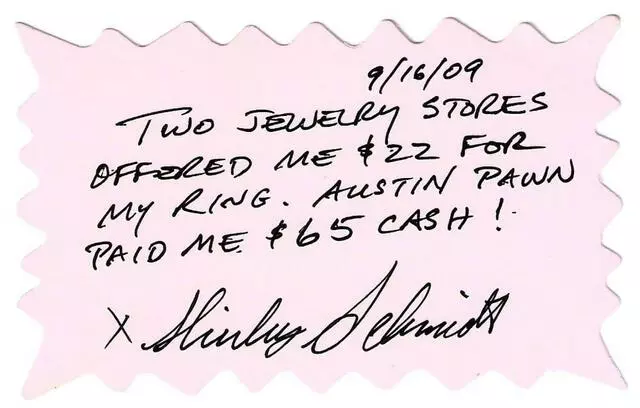 9/16/09
TWO JEWELRY STORES
OFFERED ME $22 FOR
MY RING. AUSTIN PAWN
PAID ME $65 CASH!
X Shirley Schmidt